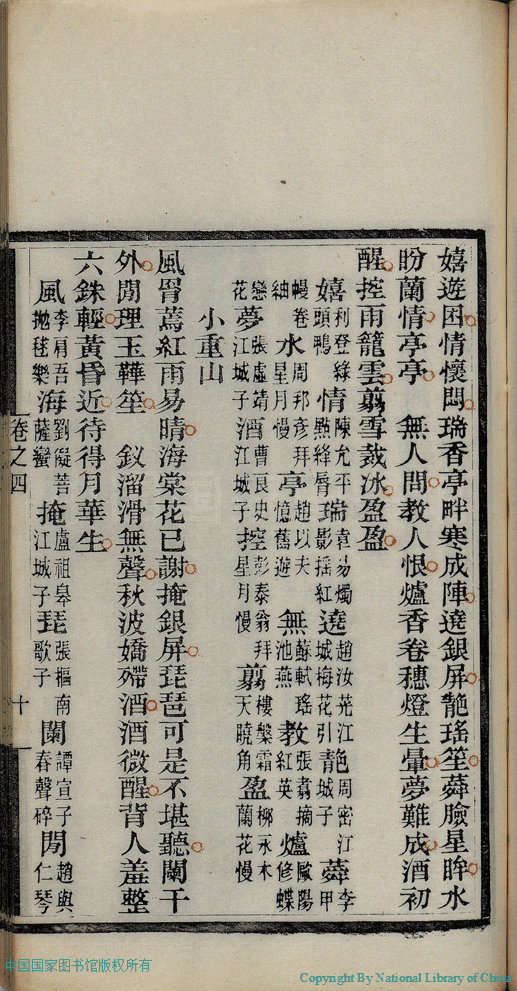 嬉遊困情懷悶瑞香亭畔寒成陣遶銀屏靘瑤笙蕣臉星眸水
盼蘭情亭亭　無人問教人恨爐香卷穗燈生暈夢難成酒初
醒控雨籠雲翦雪裁冰盈盈
嬉利登綠頭鴨情陳允平點絳脣瑞袁易燭影搖紅遶趙汝茪江城梅花引靘周密江城子蕣李甲
幔卷紬水周邦彥拜星月慢亭趙以夫憶舊遊無蘇軾瑤池燕教張翥摘紅英爐歐陽修蝶
戀花夢張虛靖江城子酒曹良史江城子控彭泰翁拜星月慢翦樓槃霜天曉角盈柳永木蘭花慢
小重山
風罥蔫紅雨易晴海棠花已謝掩銀屏琵琶可是不堪聽闌干
外閒理玉鞾笙　釵溜滑無聲秋波嬌殢酒酒微醒背人羞整
六銖輕黃昏近待得月華生
風李肩吾拋毬樂海劉儗菩薩蠻掩盧祖皋江城子琵張樞南歌子闌譚宣子春聲碎閒趙與仁琴
卷之四　十
中国国家图书馆版权所有
Copyright By National Library of China